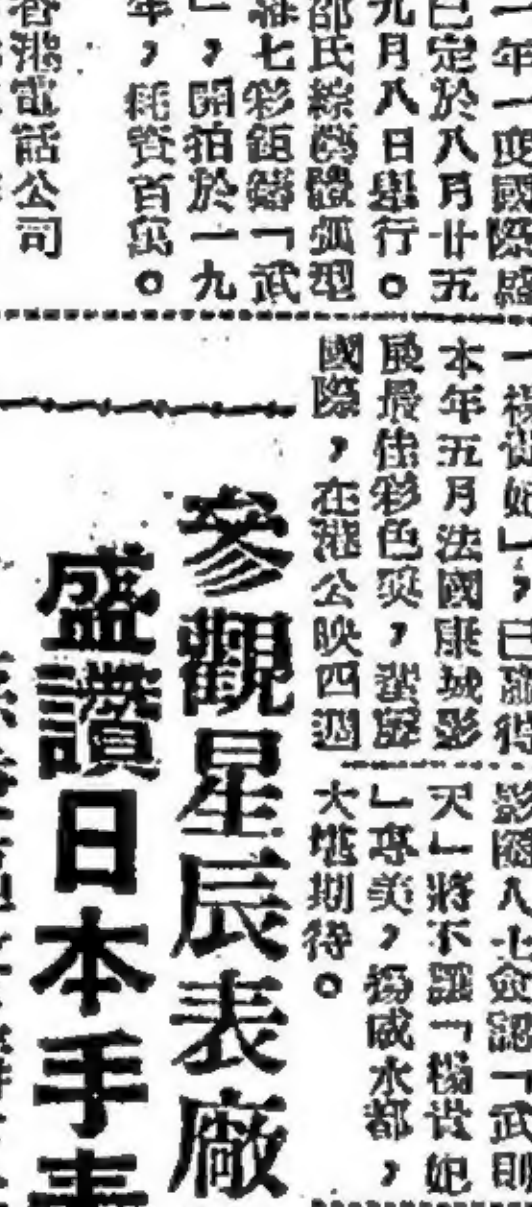 一年一度國際盛
已定於八月廿五
九月八日舉行。
邵氏綜藝體弧型
七彩鉅鑄「武
」，開拍於一九
年，耗資百萬。
香港電話公司
「楊貴妃」，已獲得
本年五月法國康城影
展最佳彩色獎，蜚聲
國際，在港公映四週
影圈人士僉認「武則
天」將不讓「楊貴妃
」專美，揚威水都，
大堪期待。
參觀星辰表廠
盛讚日本手表